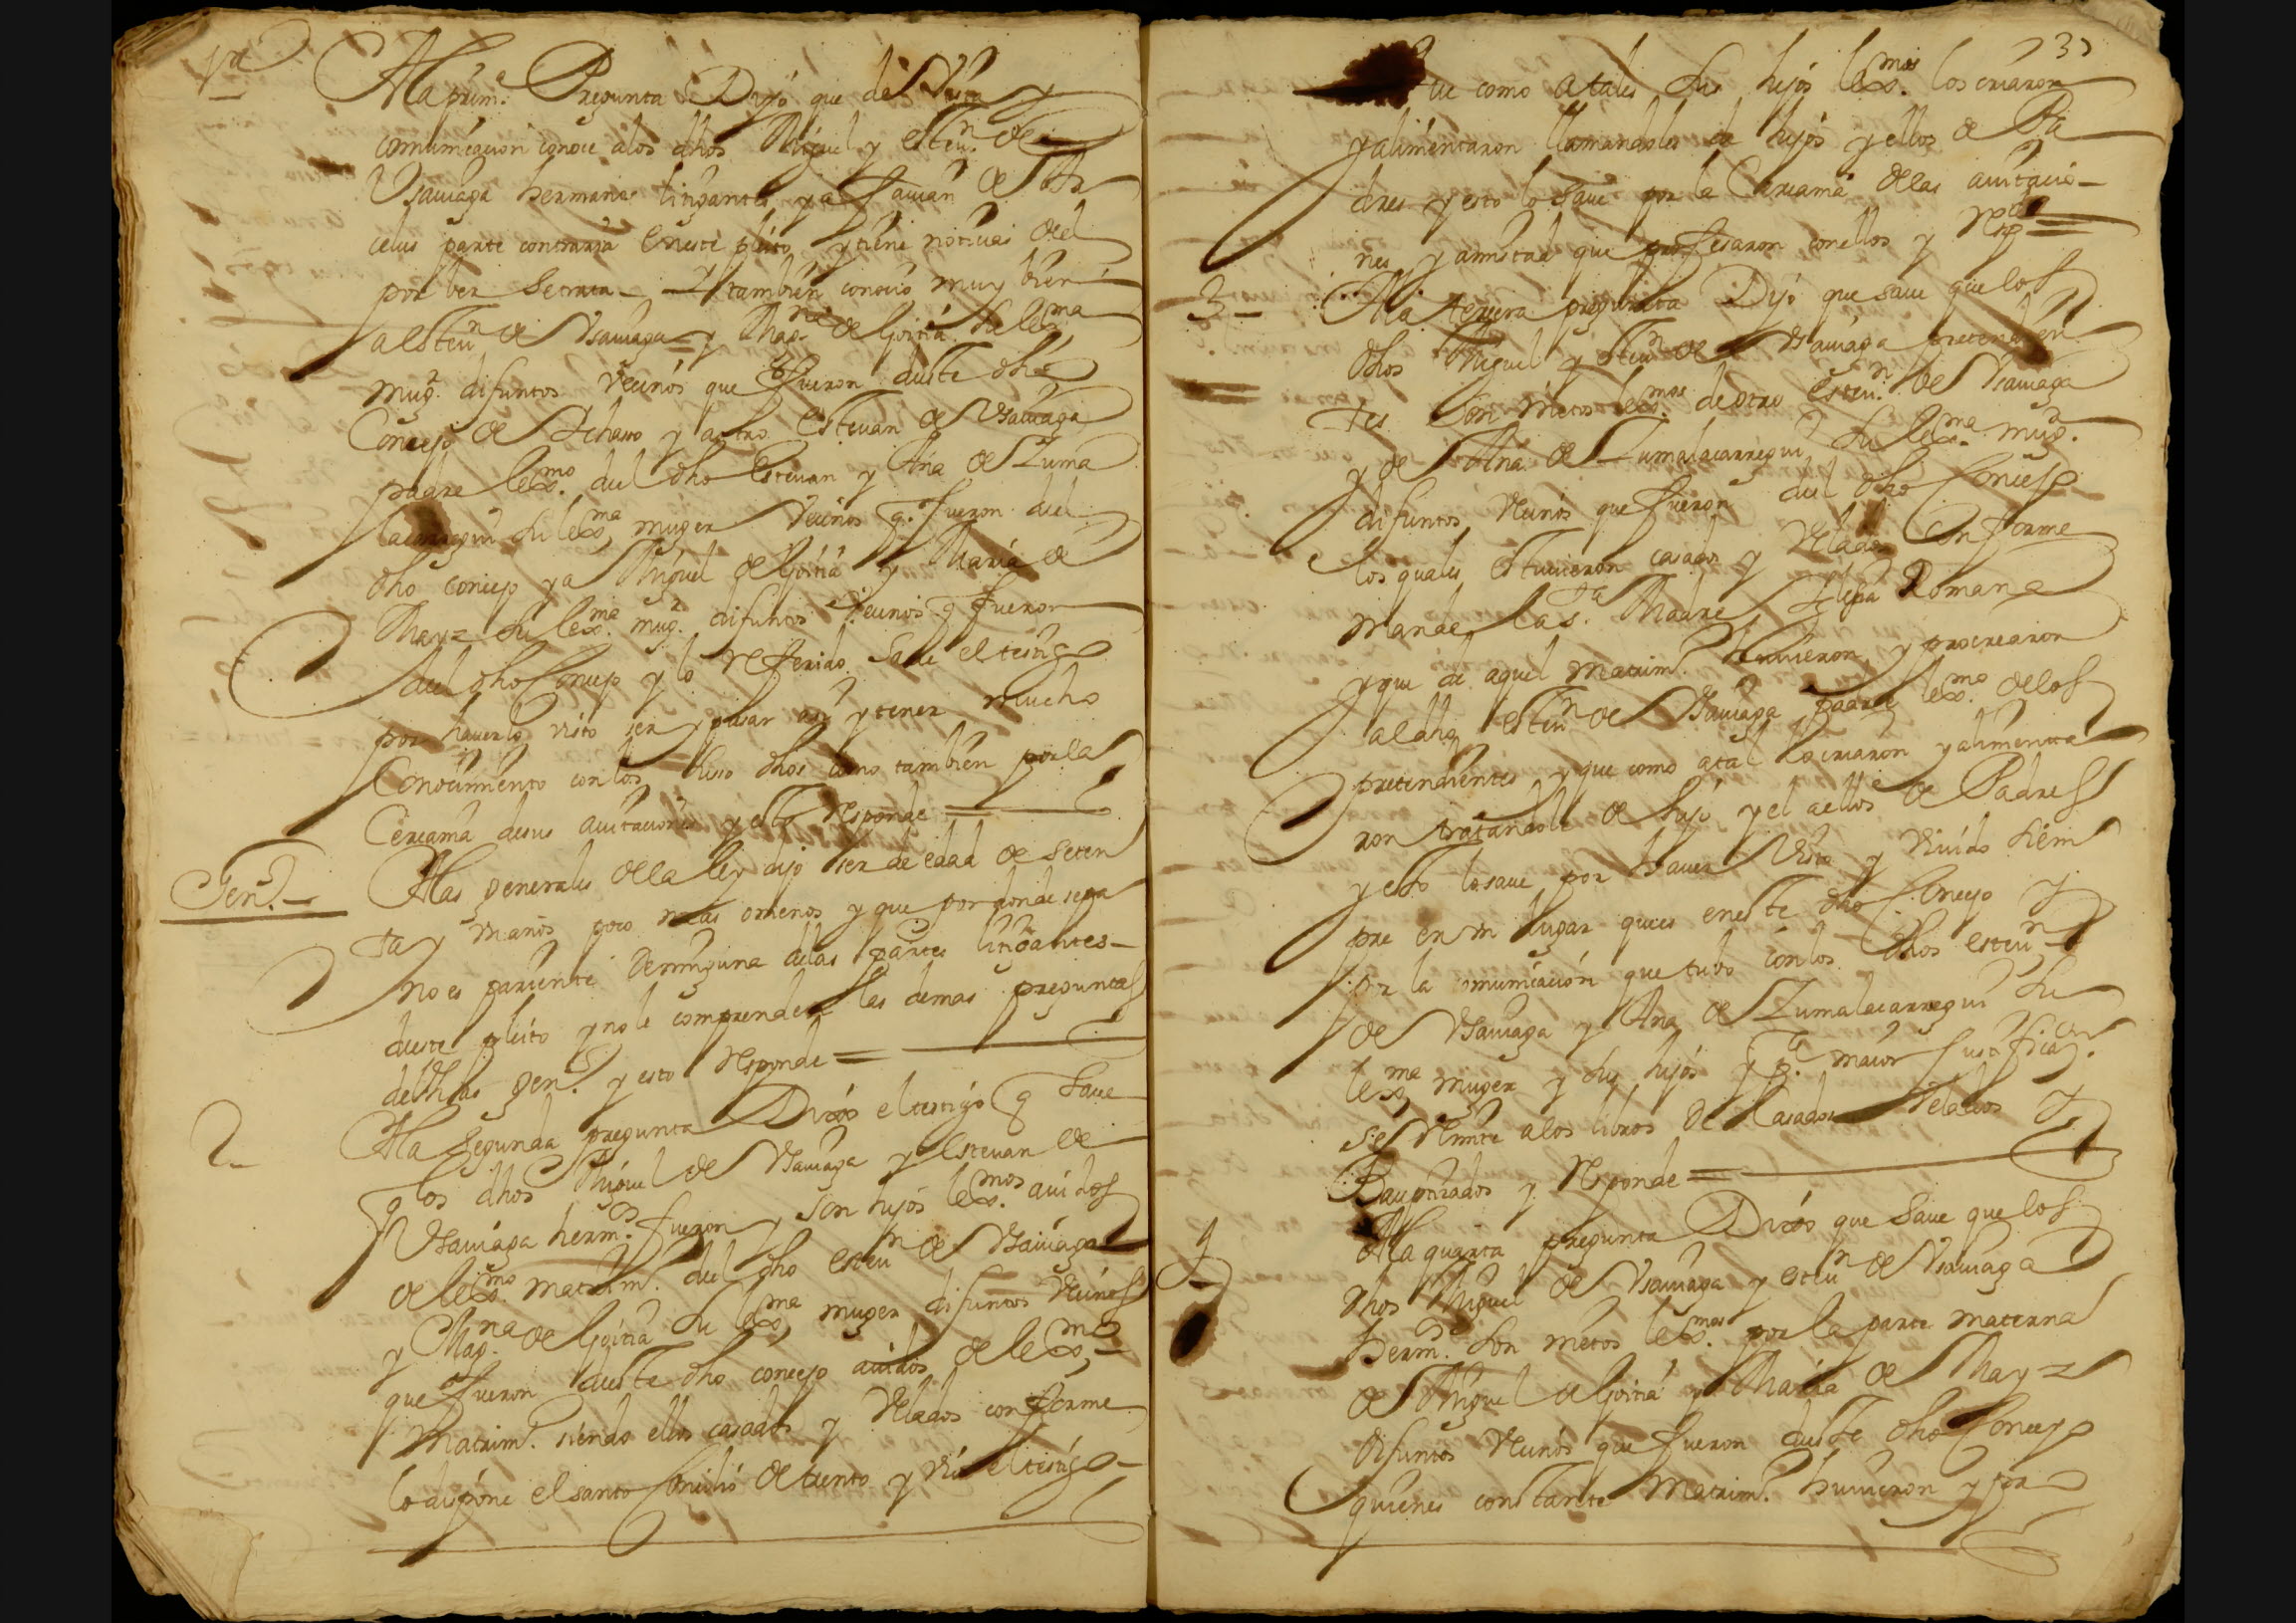 1ª
Ala prim.ª Pregunta Dijo que de Vista y
comunicacion conoce alos dhos Miguel y esteu.n de
Vsauiaga hermanos litigantes y a
celus parte contraria eneste pleito ytiene noticias del
por ser secreta Y tambien conocio muy bien
a Esteu.n de Vsauiaga y Mag.na de Goitia su lex.ma
mug.r difuntos Vecinos que fueron deste dho
Concejo de Ychaso y aotro Esteuan de Vsauiaga
padre lex.mo del dho Esteuan y Ana de Zuma
lacarregui su lex.ma muger Vecinos q.e fueron del
dho concejo ya Miguel de Goitia y Maria de
Mayz su lex.ma mug.r difuntos Vecinos q fueron
del dho Concejo y lo referido saue el testigo
por hauerlo visto ser ypasar asi ytener mucho
Conocimiento con los suso dhos como tambien porla
Cercania desus auitaciones y esto responde =
Gen.s – Alas generales dela ley dijo ser de edad de seten
ta y Vn años poco mas omenos y que por donde sepa
no es pariente deninguna delas partes litigantes –
deste pleito yno le comprenden las demas preguntas
delas gen.s y esto responde =
2 – Ala segunda pregunta Dixo el testigo q saue
q los dhos Miguel de Vsauiaga y Esteuan de
Vsauiaga herm.os fueron y son hijos lex.mos auidos
de lex.mo matrim.o del dho esteu.n de Vsauiaga
y Mag.na de Goitia su lex.ma muger difuntos Vecinos
que fueron deste dho concejo auidos de lex.mo
Matrim.o siendo ellos casados y Velados conforme
lo dispone el santo Concilio de trento y vio el testigo –
3
que como atales sus hijos lex.mos los criaron
yalimentaron llamandoles de hijos y ellos de Pa
dres y esto lo saue por la Cercania delas auitacio–
nes y amistad que profesaron con ellos y Resp.de =
3 – Ala tercera pregunta Dijo que saue que los
dhos Miguel y Esteu.n de Vsauiaga pretendien
tes son nietos lex.mos de otro Esteu.n de Vsauiaga
y de Ana de Zumalacarregui su lex.ma mug.r
difuntos Vecinos que fueron del dho Concejo
los quales estuuieron casados y Velados Conforme
manda la S.ta Madre Yglesia Romana
y que de aquel matrim.o huuieron y procrearon
al dho esteu.n de Vsauiaga padre lex.mo delos
pretendientes y que como atal lo criaron yalimenta
ron tratandole de hijo y el aellos de Padres
y esto lo saue por hauer Visto y Viuido siem
pre en su lugar que es eneste dho Concejo Y
por la comunicacion que tubo con los dhos esteu.n
de Vsauiaga y Ana de Zumalacarregui su
lex.ma muger y sus hijos y p.a maior Justificaz.on
se Remite alos libros de Casados Velados Y
Bauptizados y Responde =
4 – Ala quarta pregunta Dixo que saue que los
dhos Miguel de Vsauiaga y esteu.n de Vsauiaga
herm.os son nietos lex.mos por la parte materna
de Miguel de Goitia y Maria de Mayz
difuntos Vecinos que fueron deste dho Concejo
quienes constante Matrim.o huuieron y pro